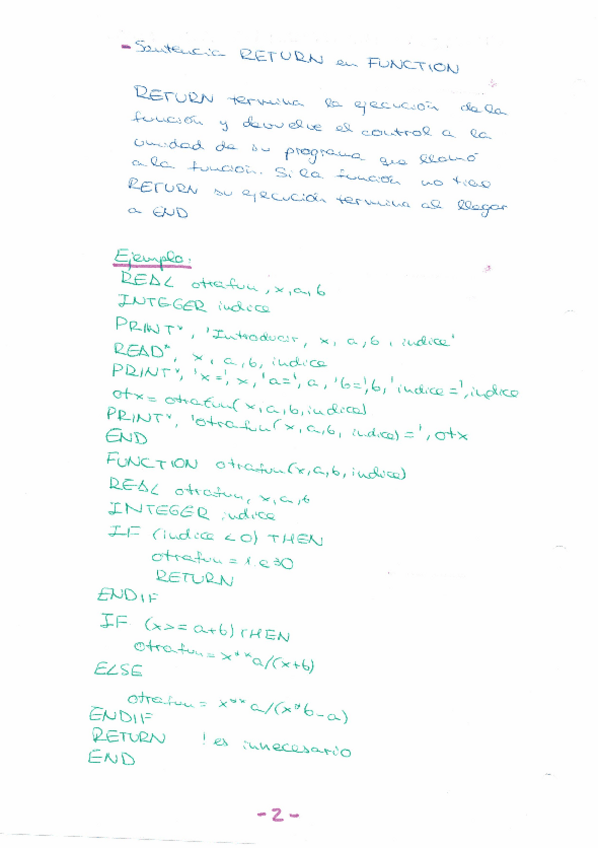 - Sentencia RETURN en FUNCTION
RETURN termina la ejecución de la
función y devuelve el control a la
unidad de su programa que llamó
a la función. Si la función no tiene
RETURN su ejecución termina al llegar
a END
Ejemplo:
REAL otrafun, x, a, b
INTEGER indice
PRINT*, 'Introducir, x, a, b, indice'
READ*, x, a, b, indice
PRINT*, 'x=', x, 'a=', a, 'b=', b, 'indice=', indice
otx = otrafun(x, a, b, indice)
PRINT*, 'otrafun(x, a, b, indice) = ', otx
END
FUNCTION otrafun(x, a, b, indice)
REAL otrafun, x, a, b
INTEGER indice
IF (indice < 0) THEN
otrafun = 1.e30
RETURN
ENDIF
IF (x >= a+b) THEN
otrafun = x**a/(x+b)
ELSE
otrafun = x**a/(x*b-a)
ENDIF
RETURN ! es innecesario
END
- 2 -